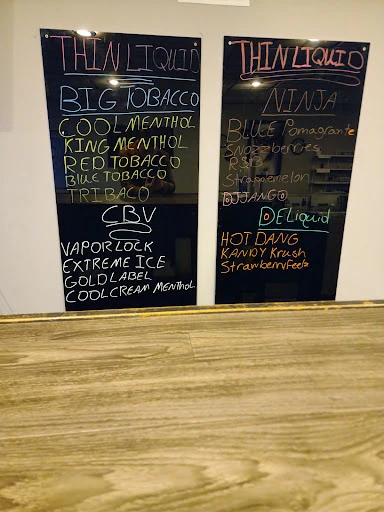 THIN LIQUID
BIG TOBACCO
COOL MENTHOL
KING MENTHOL
RED TOBACCO
BLUE TOBACCO
TRIBACO
CBV
VAPOR LOCK
EXTREME ICE
GOLD LABEL
COOL CREAM MENTHOL
THIN LIQUID
NINJA
BLUEE Pomagrante
Snozzberries
RSB
Strapplemelon
DJJANGO
DELiquid
HOT DANG
KANDY Krush
StrawberryFeelz